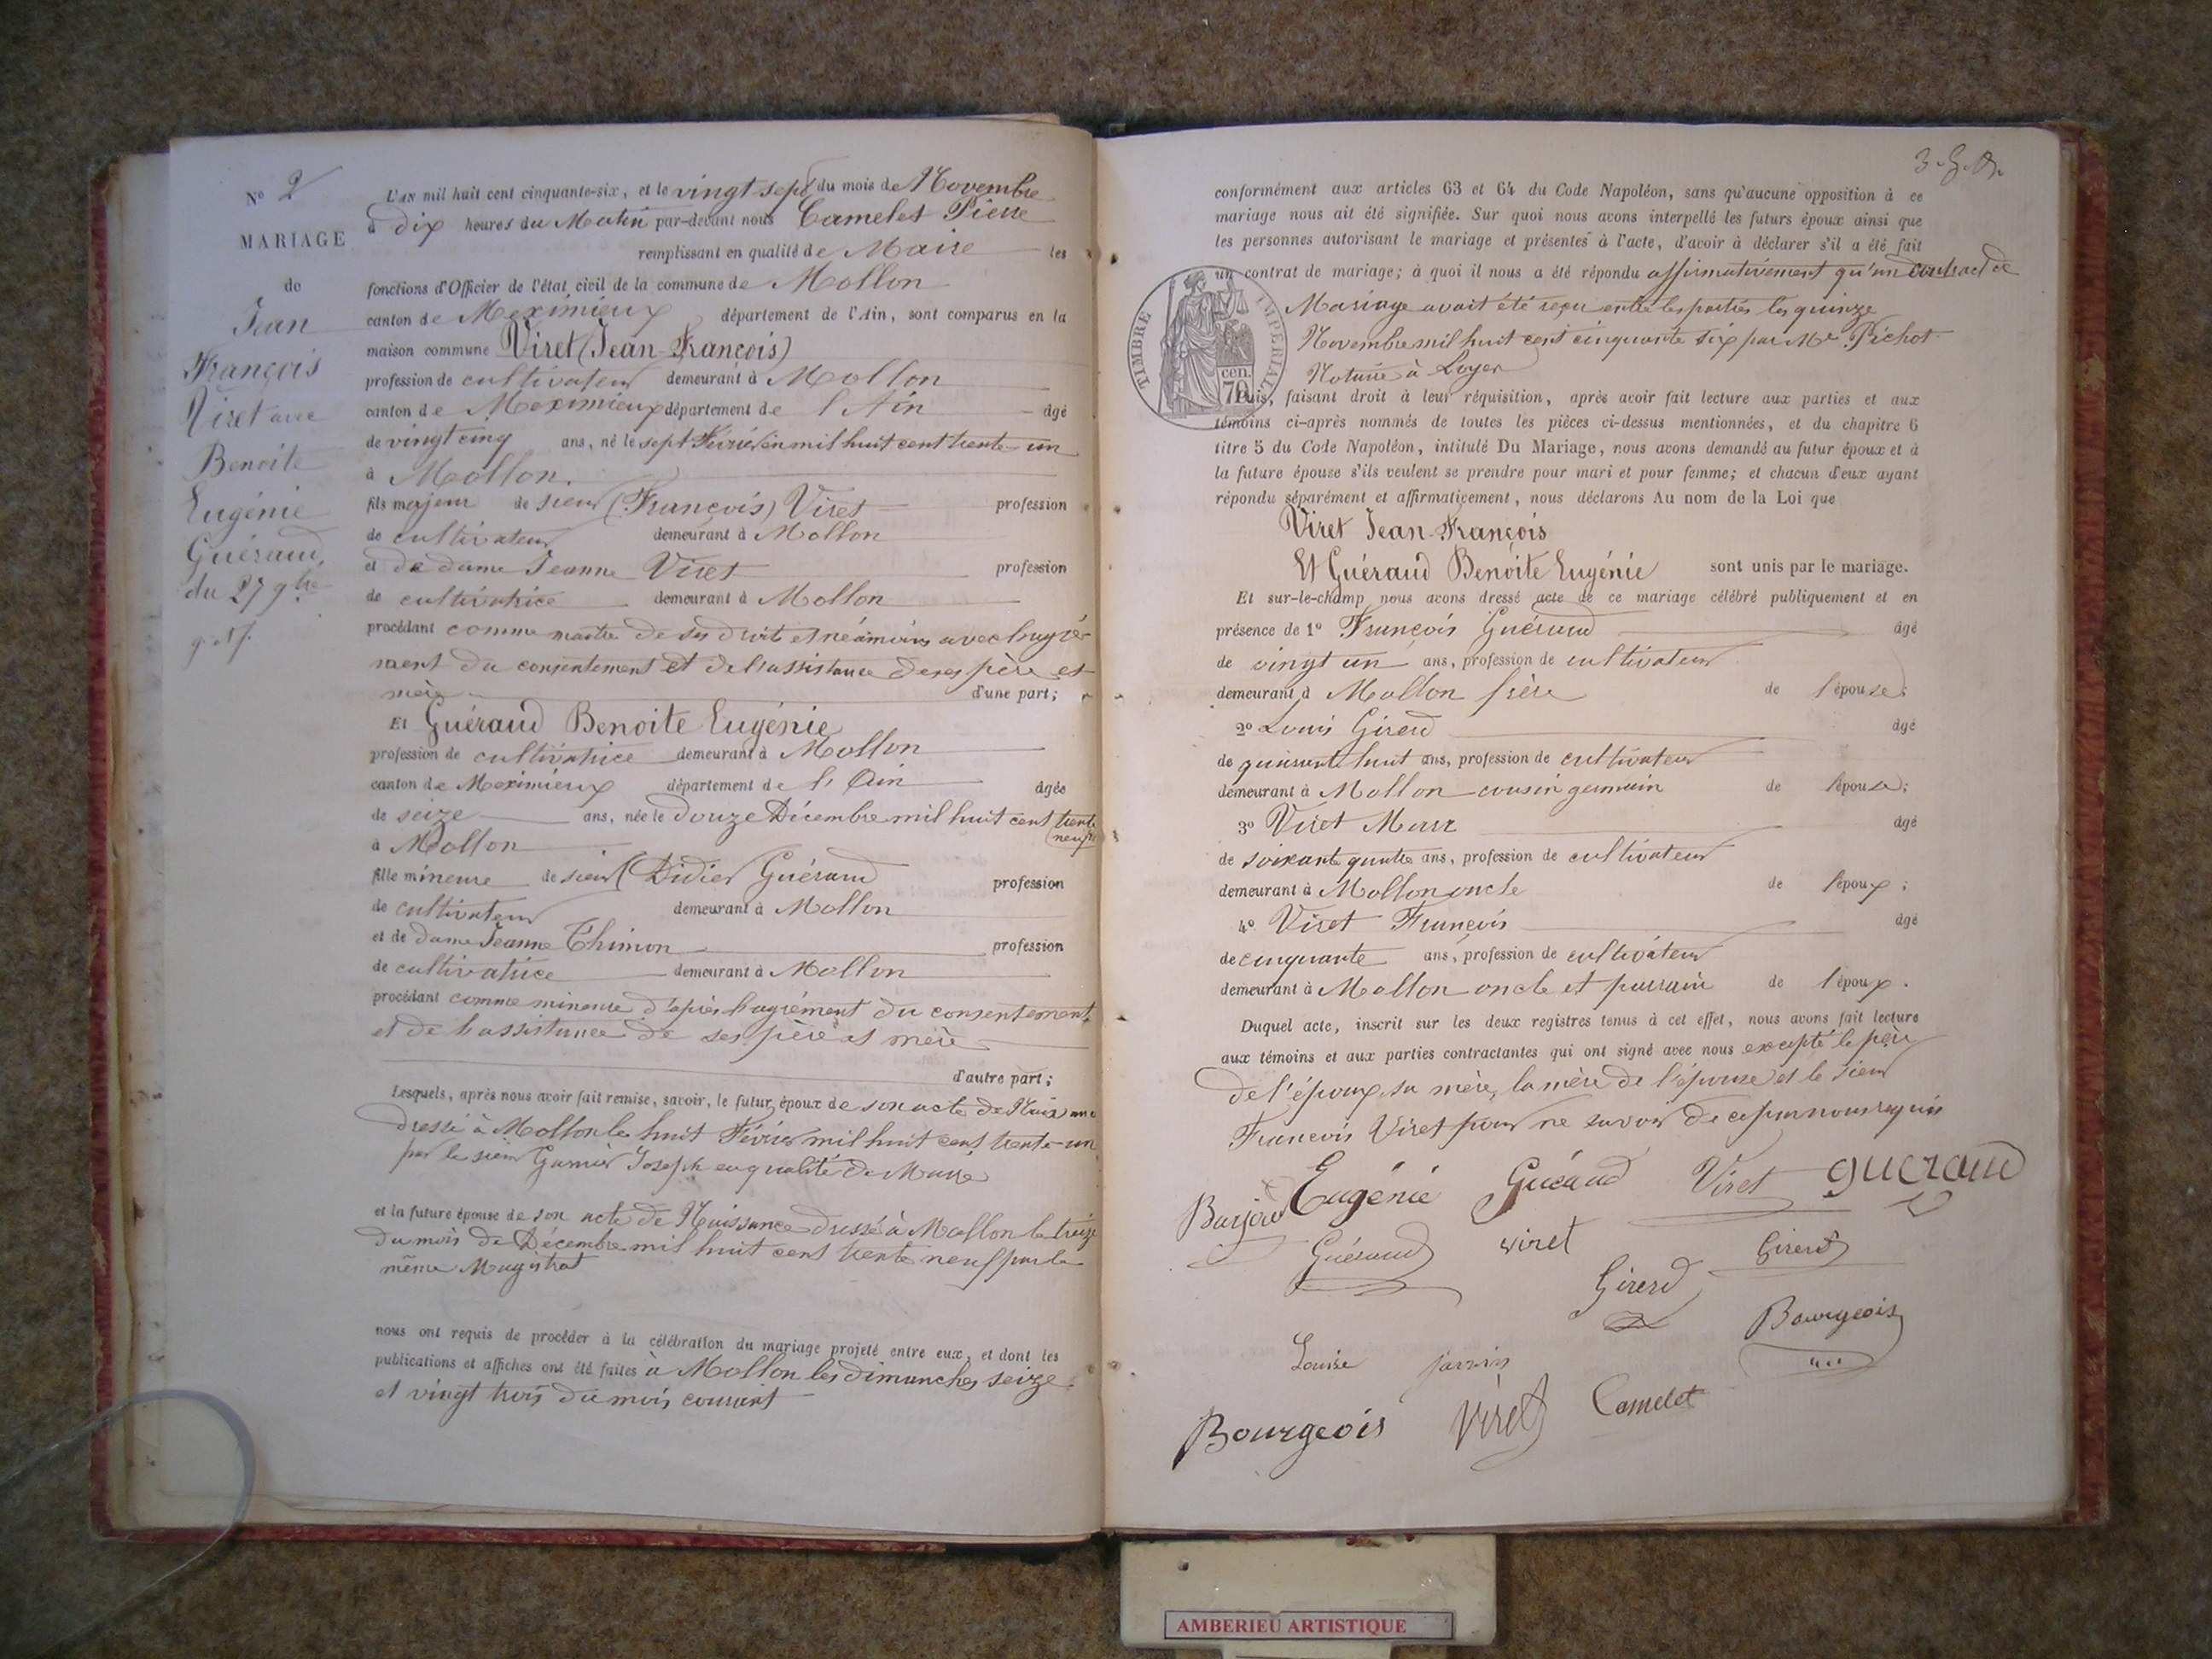 N° 2
MARIAGE
de
Jean
François
Viret avec
Benoite
Eugénie
Guéraud,
du 27 9bre
L'AN mil huit cent cinquante-six, et le vingt sept du mois de Novembre
à dix heures du Matin par-devant nous Camelet Pierre
remplissant en qualité de Maire les
fonctions d'Officier de l'état civil de la commune de Mollon
canton de Meximieux département de l'Ain, sont comparus en la
maison commune Viret (Jean-François)
profession de cultivateur demeurant à Mollon
canton de Meximieux département de l'Ain âgé
de vingt cinq ans, né le sept Février en mil huit cent trente-un
à Mollon.
fils majeur de sieur (François) Viret profession
de cultivateur demeurant à Mollon
et de dame Jeanne Viret profession
de cultivatrice demeurant à Mollon
procédant comme maitre de ses droits et néamoins avec l'agré-
ment du consentement et de l'assistance de ses père et
mère d'une part;
Et Guéraud Benoite Eugénie
profession de cultivatrice demeurant à Mollon
canton de Meximieux département de l'Ain âgée
de seize ans, née le douze Décembre mil huit cent trente
(neuf)
à Mollon
fille mineure de sieur Didier Guéraud profession
de cultivateur demeurant à Mollon
et de dame Jeanne Thimon profession
de cultivatrice demeurant à Mollon
procédant comme mineure d'après l'agrément du consentement
et de l'assistance de ses père et mère
d'autre part;
Lesquels, après nous avoir fait remise, savoir, le futur époux de son acte de Naissance
dressé à Mollon le huit Février mil huit cent trente-un
par le sieur Garnier Joseph en qualité de Maire
et la future épouse de son acte de Naissance dressé à Mollon le treize
du mois de Décembre mil huit cent trente neuf par le
même Magistrat
nous ont requis de procéder à la célébration du mariage projeté entre eux, et dont les
publications et affiches ont été faites à Mollon les dimanches seize
et vingt trois du mois courant
conformément aux articles 63 et 64 du Code Napoléon, sans qu'aucune opposition à ce
mariage nous ait été signifiée. Sur quoi nous avons interpellé les futurs époux ainsi que
les personnes autorisant le mariage et présentes à l'acte, d'avoir à déclarer s'il a été fait
un contrat de mariage; à quoi il nous a été répondu affirmativement qu'un contract de
Mariage avait été reçu entre les parties les quinze
Novembre mil huit cent cinquante six par Me Pichot
Notaire à Loyes
TIMBRE IMPÉRIAL
cen.
70
Puis, faisant droit à leur réquisition, après avoir fait lecture aux parties et aux
témoins ci-après nommés de toutes les pièces ci-dessus mentionnées, et du chapitre 6
titre 5 du Code Napoléon, intitulé Du Mariage, nous avons demandé au futur époux et à
la future épouse s'ils veulent se prendre pour mari et pour femme; et chacun d'eux ayant
répondu séparément et affirmativement, nous déclarons Au nom de la Loi que
Viret Jean-François
Et Guéraud Benoite Eugénie sont unis par le mariage.
Et sur-le-champ nous avons dressé acte de ce mariage célébré publiquement et en
présence de 1° François Guéraud âgé
de vingt un ans, profession de cultivateur
demeurant à Mollon frère de l'épouse;
2° Louis Girerd âgé
de quarante huit ans, profession de cultivateur
demeurant à Mollon cousin germain de l'épouse;
3° Viret Marc âgé
de soixante quatre ans, profession de cultivateur
demeurant à Mollon oncle de l'époux;
4° Viret François âgé
de cinquante ans, profession de cultivateur
demeurant à Mollon oncle et parrain de l'époux.
Duquel acte, inscrit sur les deux registres tenus à cet effet, nous avons fait lecture
aux témoins et aux parties contractantes qui ont signé avec nous excepté le père
de l'époux, sa mère, la mère de l'épouse et le sieur
François Viret pour ne savoir de ce par nous requis
Eugénie Guéraud Viret gueraud
Guéraud viret Girerd
Girerd
Bourgeois
Louise
Bourgeois Viret Camelet
AMBERIEU ARTISTIQUE